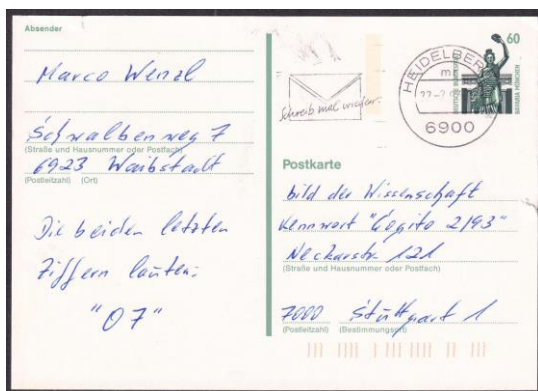 Absender
Marco Wenzl
Schwalbenweg 7
(Straße und Hausnummer oder Postfach)
6923 Waibstadt
(Postleitzahl) (Ort)
Die beiden letzten
Ziffern lauten:
"07"
Schreib mal wieder.
HEIDELBERG
m
6900
60
DEUTSCHE BUNDESPOST
BAVARIA MÜNCHEN
Postkarte
bild der Wissenschaft
Kennwort "Cogito 2/93"
Neckarstr. 121
(Straße und Hausnummer oder Postfach)
7000 Stuttgart 1
(Postleitzahl) (Bestimmungsort)